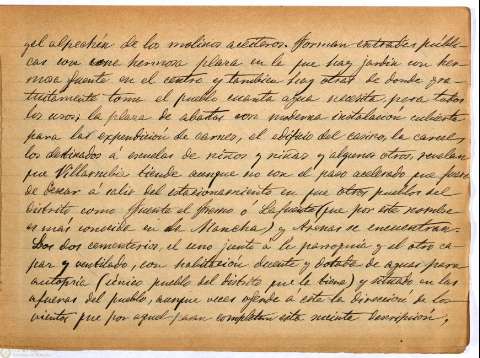 y el alpechín de los molinos aceiteros. Forman entradas públi-
cas con una hermosa plaza en la que hay jardín con her-
mosa fuente en el centro y tambien hay otras de donde gra-
tuitamente toma el pueblo cuanta agua necesita para todos
los usos; la plaza de abastos con moderna instalacion cubierta
para las expendición de carnes, el edificio del casino, la carcel
los destinados á escuelas de niños y niñas y algunos otros, revelan
que Villarrubia tiende aunque no con el paso acelerado que fuera
de desear á salir del estacionamiento en que otros pueblos del
distrito como Fuente el Fresno ó Lafuente (que por este nombre
es mas conocida en la Mancha) y Arenas se encuentran.
Dos cementerios, el uno junto á la parroquia y el otro ca-
paz y ventilado, con habitación decente y dotada de aguas para
autopsia (único pueblo del distrito que la tiene) y situado en las
afueras del pueblo, aunque veces ofende á este la dirección de los
vientos que por aquel pasan completan esta sucinta descripción,